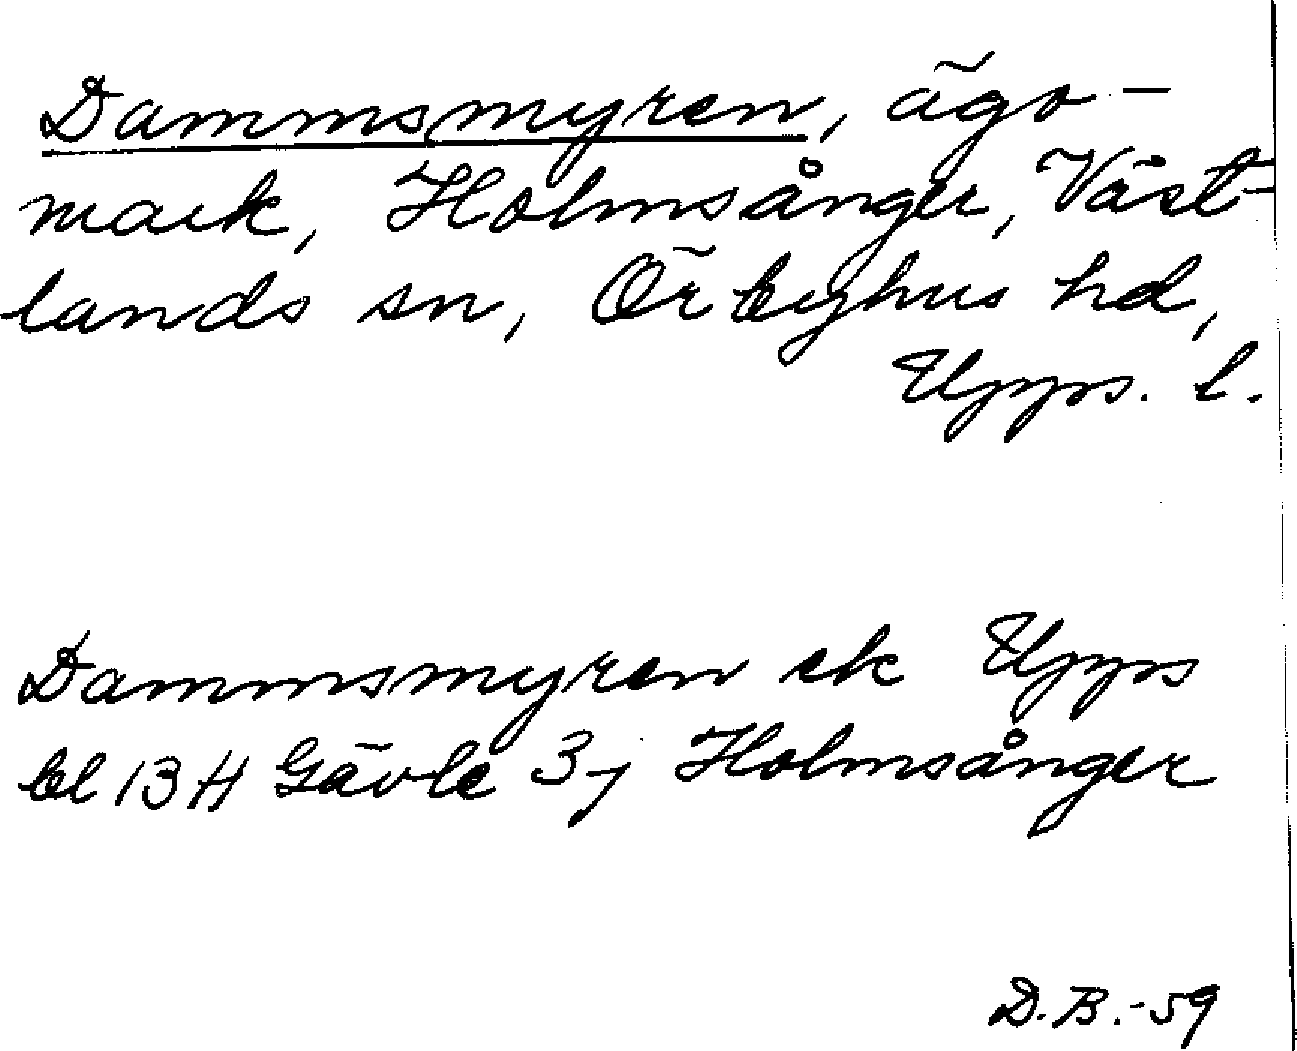 Dammsmyren, ägo-
mark, Holmsånger, Väst-
lands sn, Örbyhus hd,
Upps. l.
Dammsmyren ek Upps
bl 13 H Gävle 3j Holmsånger
D.B.-59